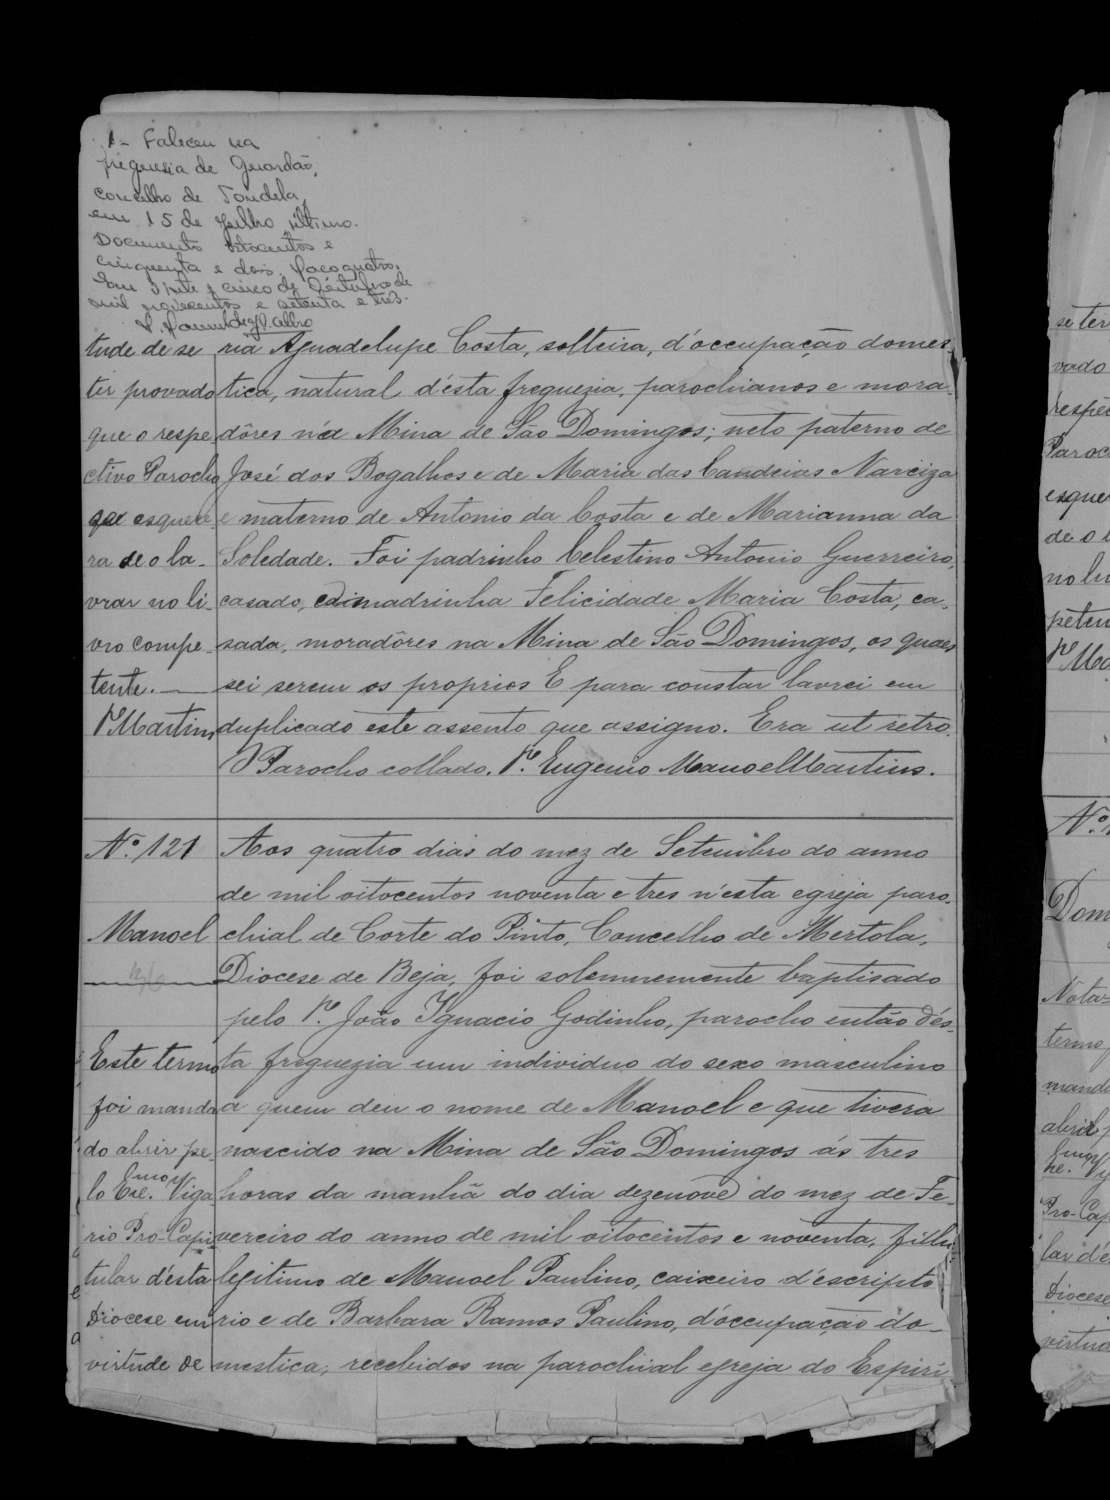 1- Faleceu na
freguesia de Guardão,
concelho de Tondela,
em 15 de Julho último.
Documento oitocentos e
cinquenta e dois, Maço quatro.
Em vinte e cinco de Setembro de
mil novecentos e setenta e três.
tude de se
ter provado
que o respe-
ctivo Parocho
que esquece-
ra de o la-
vrar no li-
vro compe-
tente. —
Pe Martins
ria Aguadelupe Costa, solteira, d'occupação domes-
tica, natural d'ésta freguezia, parochianos e mora-
dôres n'a Mina de São Domingos; neto paterno de
José dos Bogalhos e de Maria das Candeias Narciza
e materno de Antonio da Costa e de Marianna da
Soledade. Foi padrinho Celestino Antonio Guerreiro,
casado, madrinha Felicidade Maria Costa, ca-
sada, moradôres na Mina de São Domingos, os quaes
sei serem os proprios E para constar lavrei em
duplicado este assento que assigno. Era ut retro.
O Parocho collado. Pe. Eugenio Manoel Martins.
Nº 121
Manoel
Este termo
foi manda-
do abrir pe-
lo Exe. mo Viga-
rio Pro-Capi-
tular d'ésta
Diocese em
virtude de
Aos quatro dias do mez de Setembro do anno
de mil oitocentos noventa e tres n'esta egreja paro-
chial de Corte do Pinto, Concelho de Mertola,
Diocese de Beja, foi solemnemente baptisado
pelo Pe. João Ignacio Godinho, parocho então dés-
ta freguezia um individuo do sexo masculino
a quem deu o nome de Manoel e que tivera
nascido na Mina de São Domingos ás tres
horas da manhã do dia dezenove do mez de Fe-
vereiro do anno de mil oitocentos e noventa, filho
legitimo de Manoel Paulino, caixeiro d'escripto
rio e de Barbara Ramos Paulino, d'óccupação do-
mestica, recebidos na parochial egreja do Espiri
se ter
vado
respe
Paroc
esque
de o
no li
peten
Pe Ma
Nº
Dom
Nota=
termo
mand
abrir p
Pro-Cap
lar d'é
Diocese
virtud